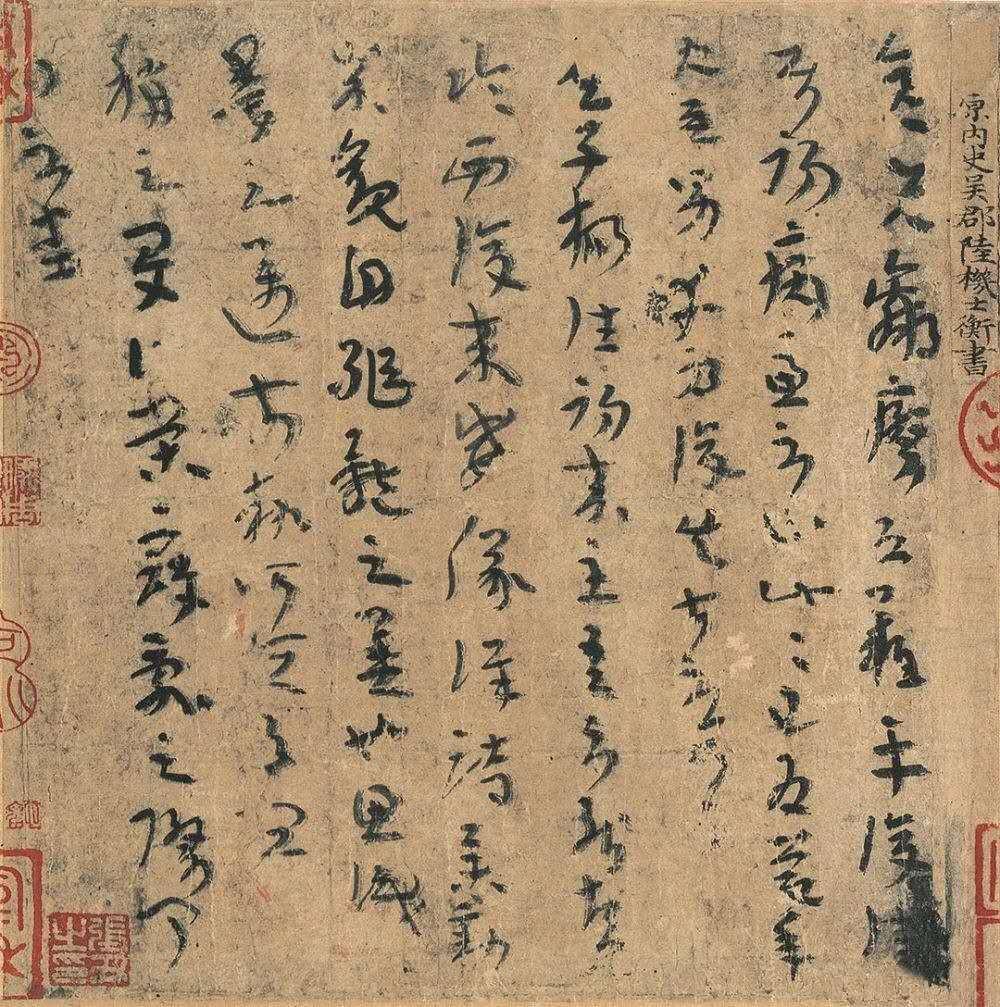 晉內史吳郡陸機士衡書
彥先羸瘵恐難平復往
屬初病慮不止此此已為慶承
使唯男幸為復失前憂耳
子楊往初來主吾不能盡
臨西復來威儀詳跱舉動
成觀自軀體之美也思識
量之邁前執所恆有宜
稱之夏榮寇亂之際聞
問不悉